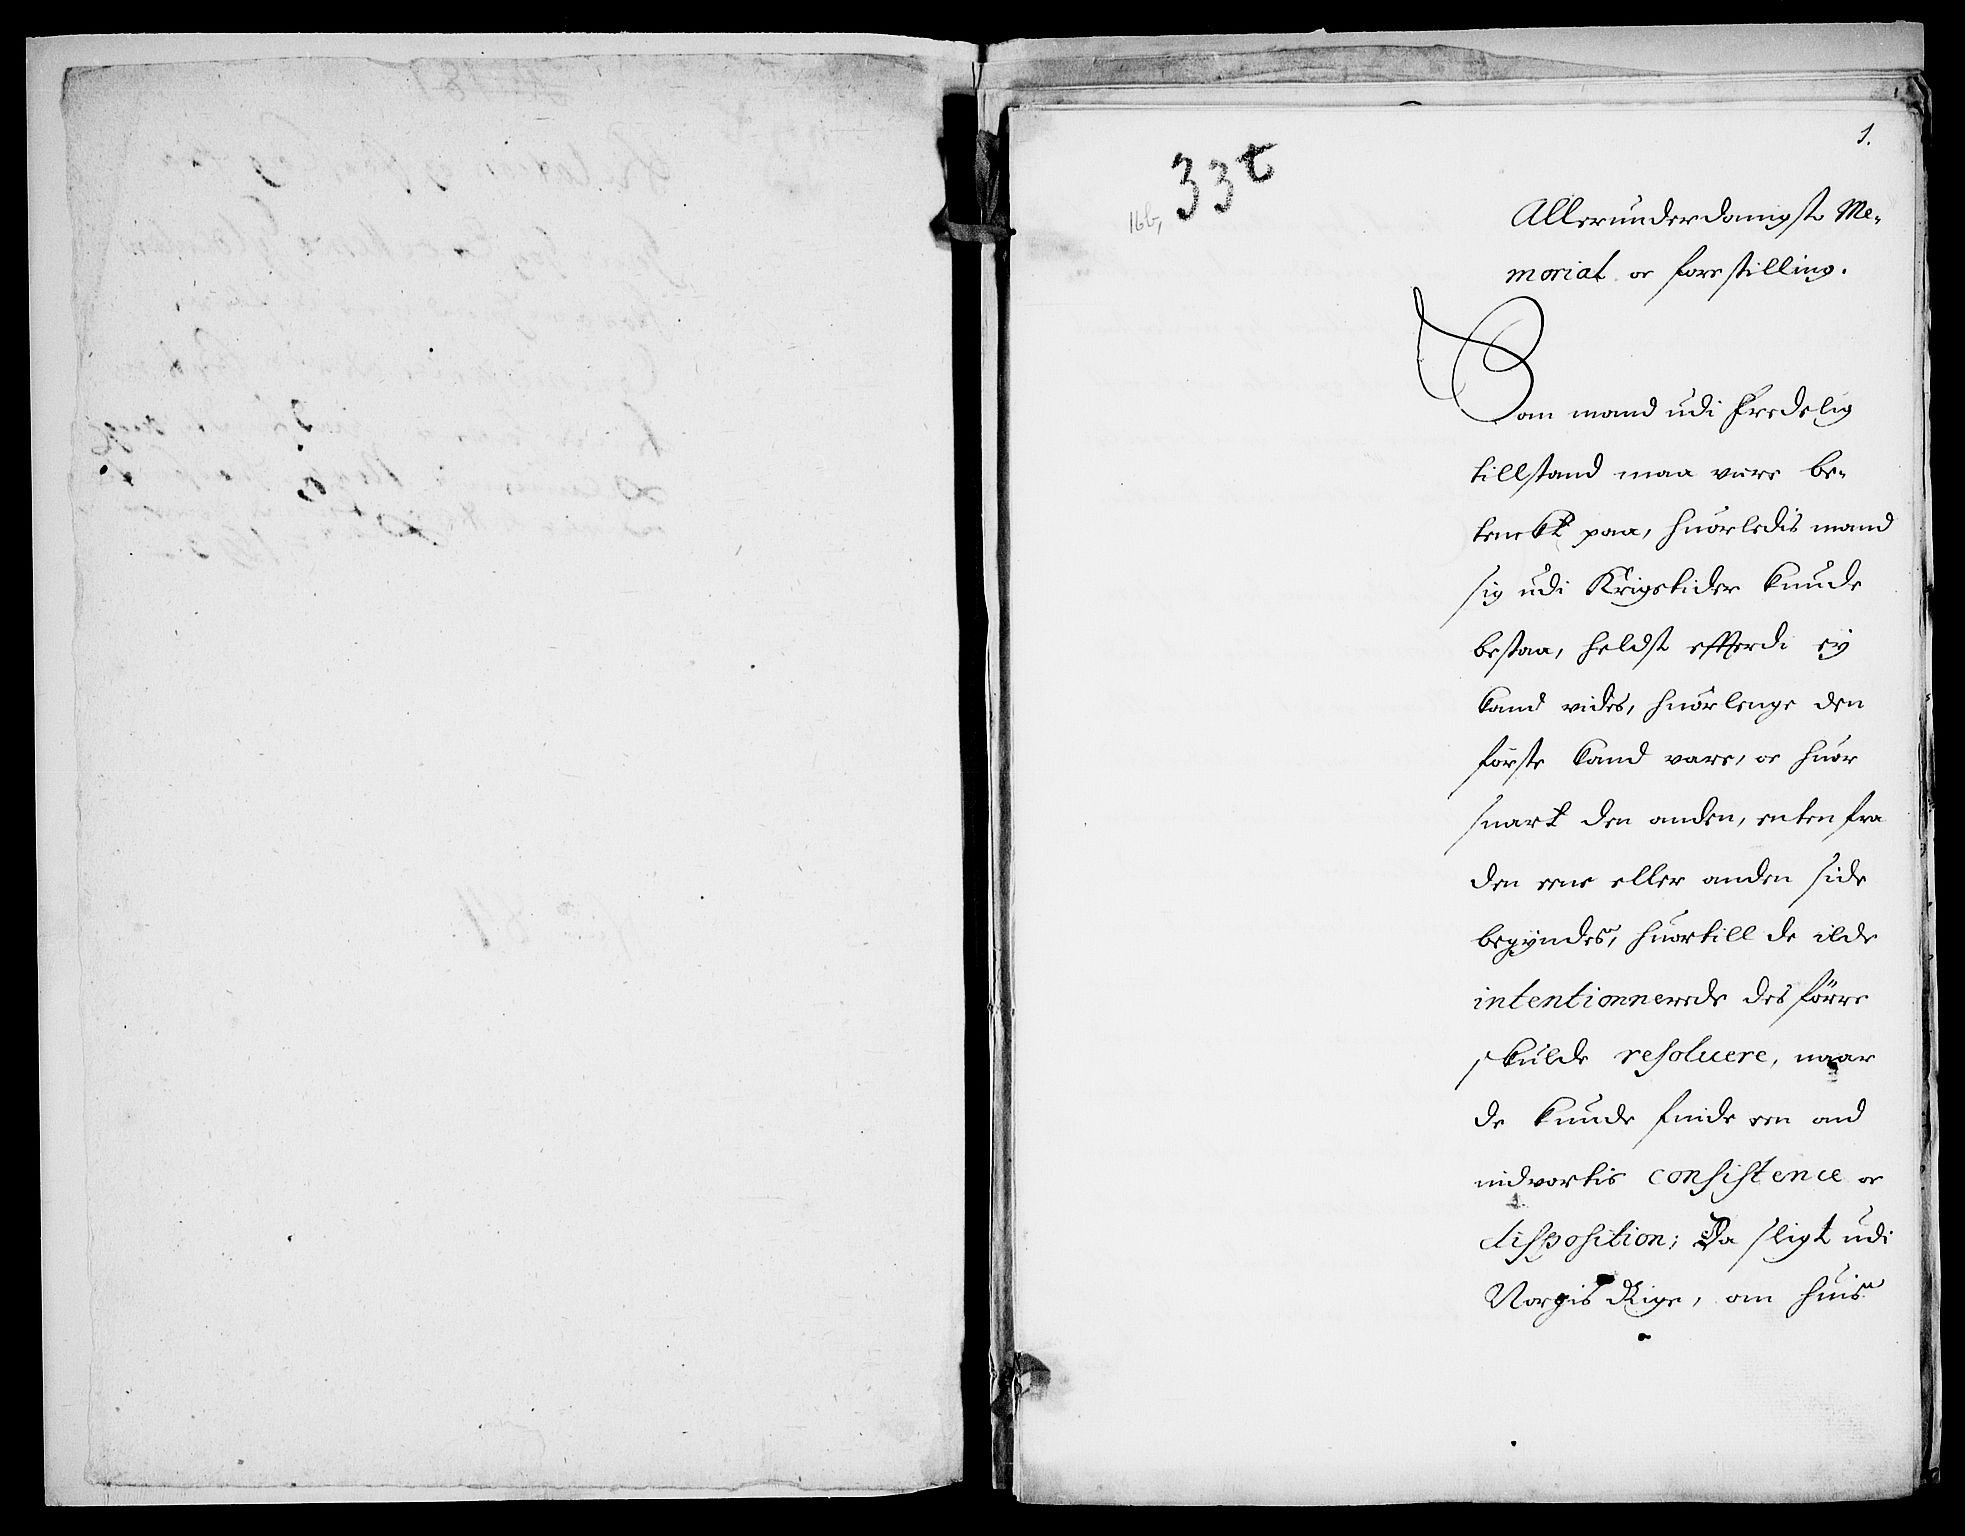 1.
33 t
16b,
Allerunderdanigste Me-
morial oc forestilling.
Som mand udi Fredelig
tillstand maa være be-
tenckt paa, huorledis mand
sig udi Krigstider kunde
bestaa, heldst effterdi ey
kand vides, huorlenge den
förste kand vare, oc huor
snart den anden, enten fra
den eene eller anden side
begÿndes, huortill de ilde
intentionnerede des förre
skulde resoluere, naar
de kunde finde een ond
indvortis consistence oc
disposition; Da sligt udi
Norgis Rige, om huis